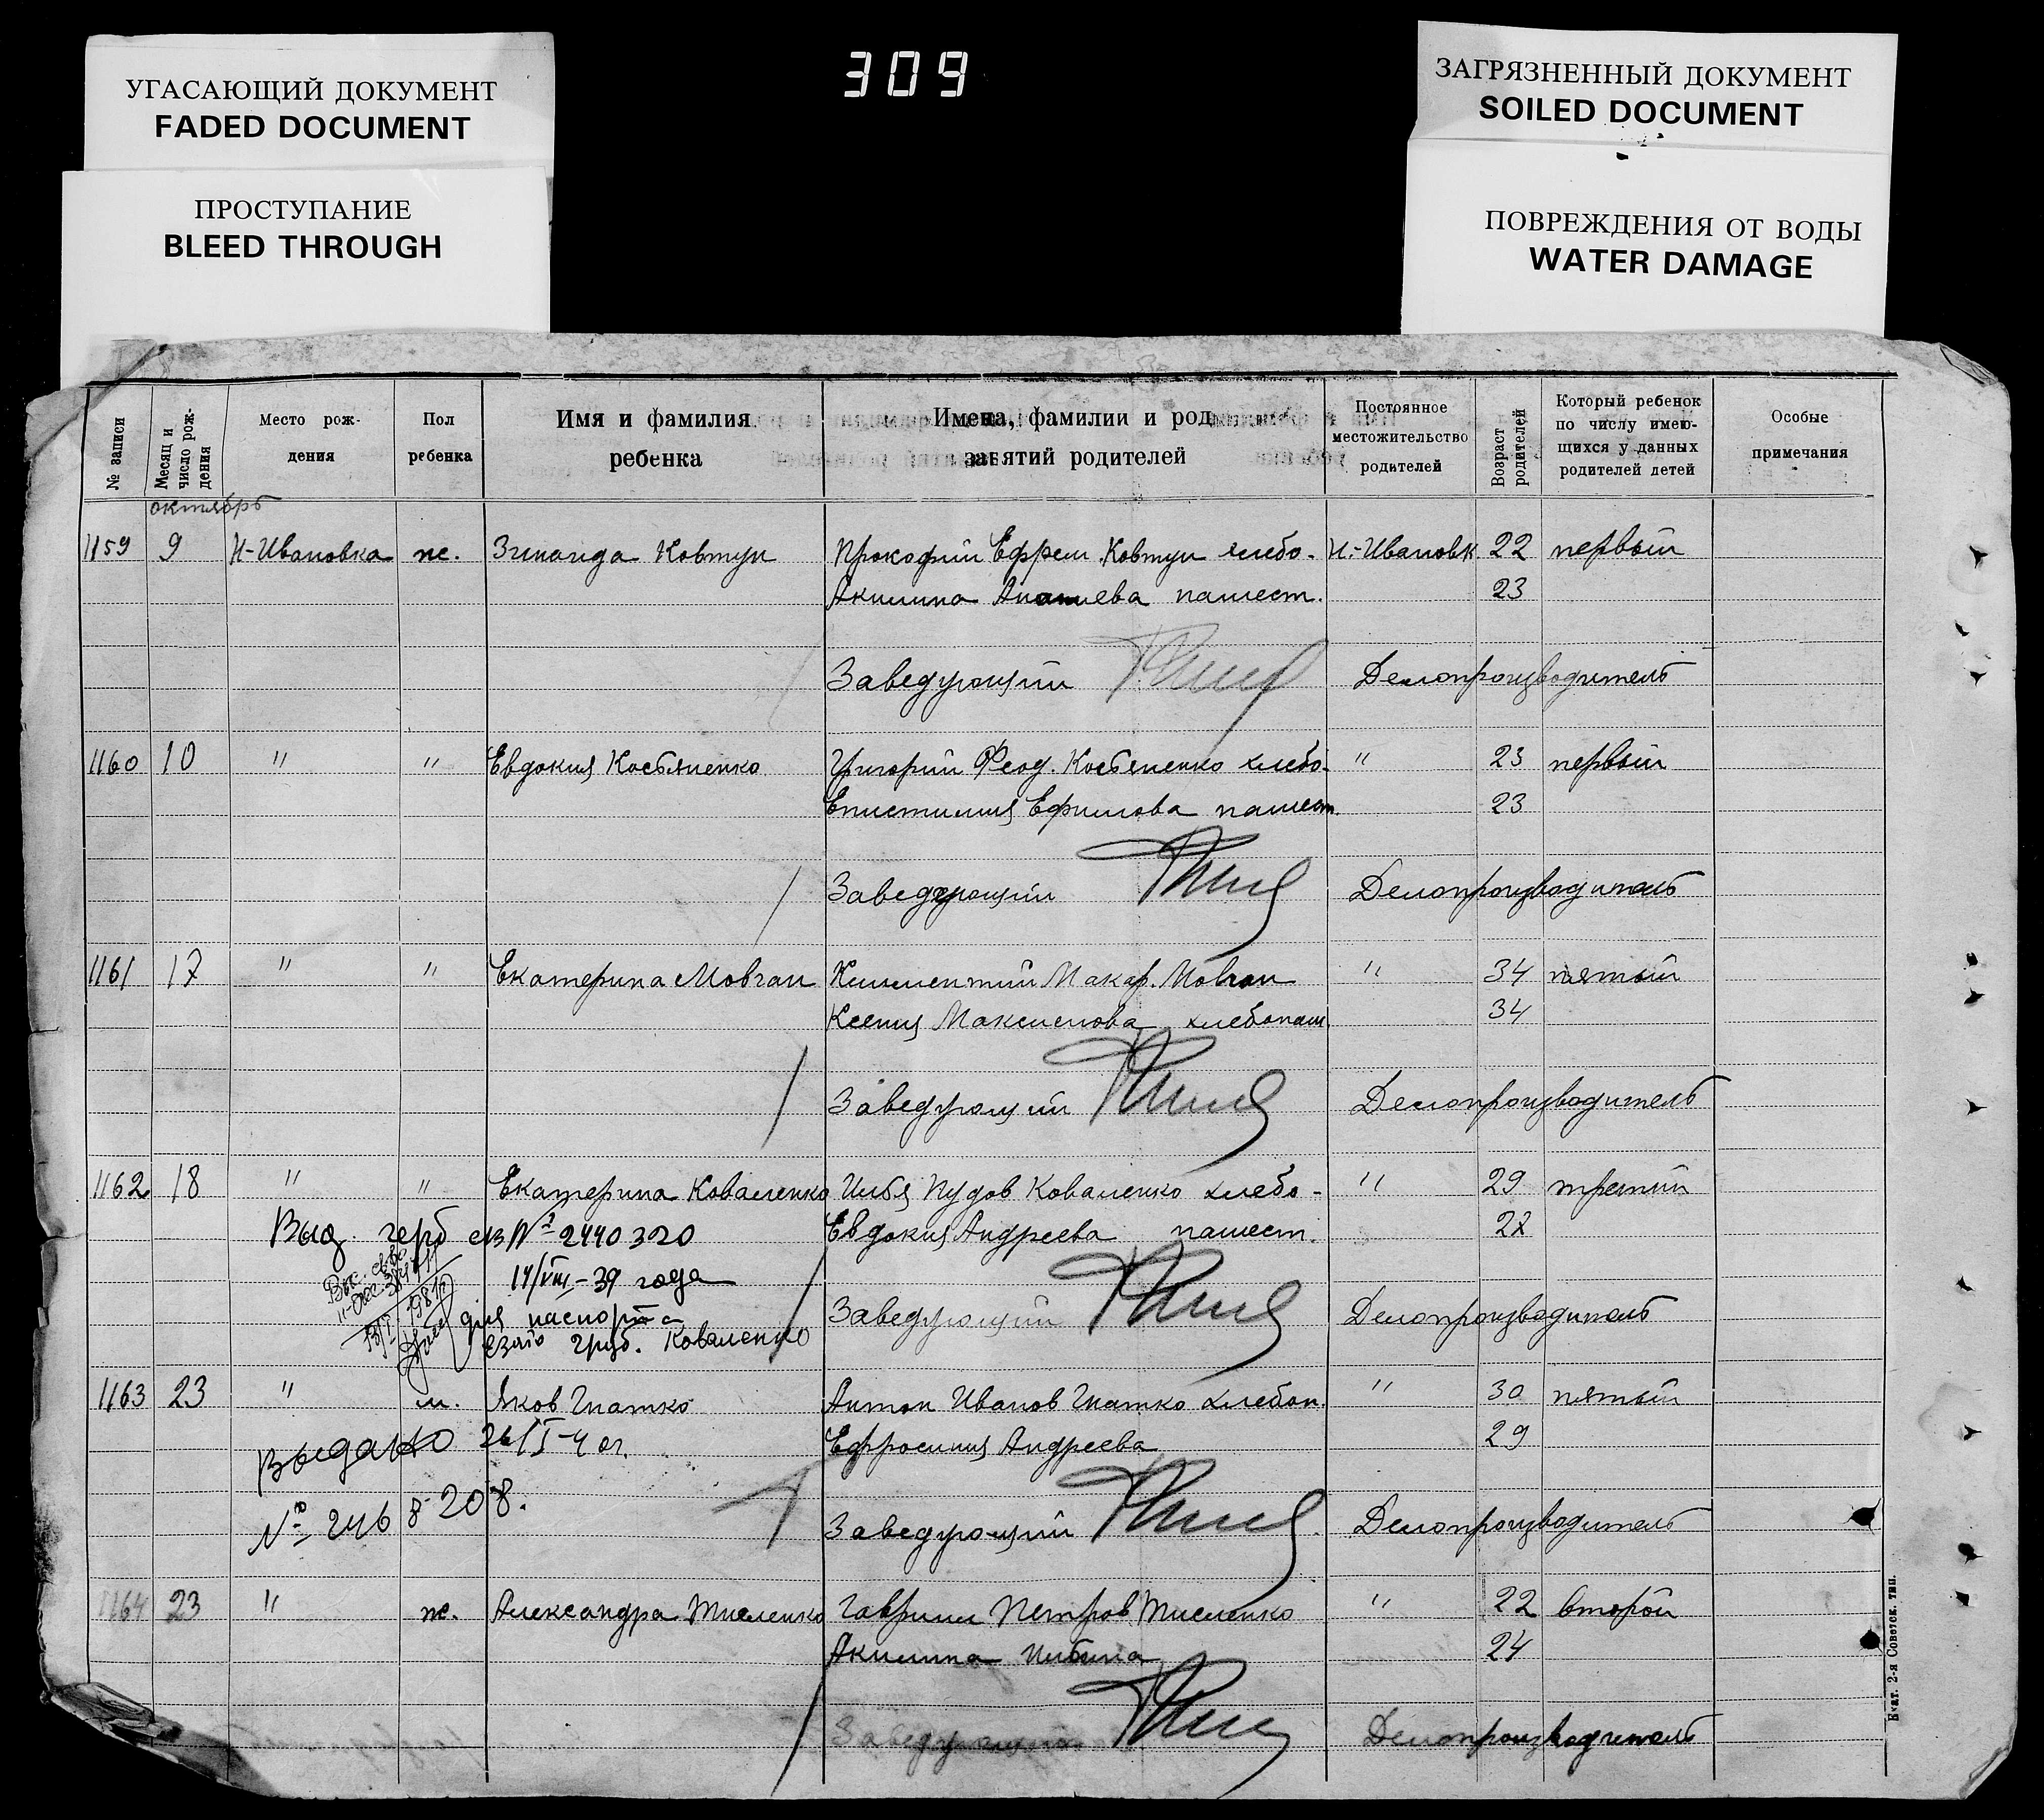 УГАСАЮЩИЙ ДОКУМЕНТ
FADED DOCUMENT
ПРОСТУПАНИЕ
BLEED THROUGH
309
ЗАГРЯЗНЕННЫЙ ДОКУМЕНТ
SOILED DOCUMENT
ПОВРЕЖДЕНИЯ ОТ ВОДЫ
WATER DAMAGE
№ записи
Месяц и число рож-дения
Место рож-
дения
Пол
ребенка
Имя и фамилия
ребенка
Имена, фамилии и род
занятий родителей
Постоянное
местожительство
родителей
Возраст родителей
Который ребенок
по числу имею-
щихся у данных
родителей детей
Особые
примечания
октябрь
1159 9 Н-Ивановка ж. Зинаида Ковтун Прокофий Ефрем. Ковтун хлебо- Н.-Ивановк 22 первый
Акилина Ананиева пашест. 23
Заведующий Делопроизводитель
1160 10 " " Евдокия Костяненко Григорий Феод. Костяненко хлебо- " 23 первый
Епистимия Ефимова пашест. 23
Заведующий Делопроизводитель
1161 17 " " Екатерина Мовчан Климентий Макар. Мовчан " 34 пятый
Ксения Максимова хлебопаш. 34
Заведующий Делопроизводитель
1162 18 " " Екатерина Коваленко Илья Пудов Коваленко хлебо- " 29 третий
Выд. герб св № 2440320 Евдокия Андреева пашест.
14/VIII-39 года
для паспорта
Заведующий Делопроизводитель
Коваленко
1163 23 " м. Яков Гнатко Антон Иванов Гнатко хлебоп. " 30 пятый
Выдано 26/I-40г. Ефросиния Андреева 29
№ 246 8-208.
Заведующий Делопроизводитель
1164 23 " ж. Александра Тисленко Гавриил Петров Тисленко " 22 второй
Акилина Ильина 24
Заведующий Делопроизводитель
2-я Советск. тип.